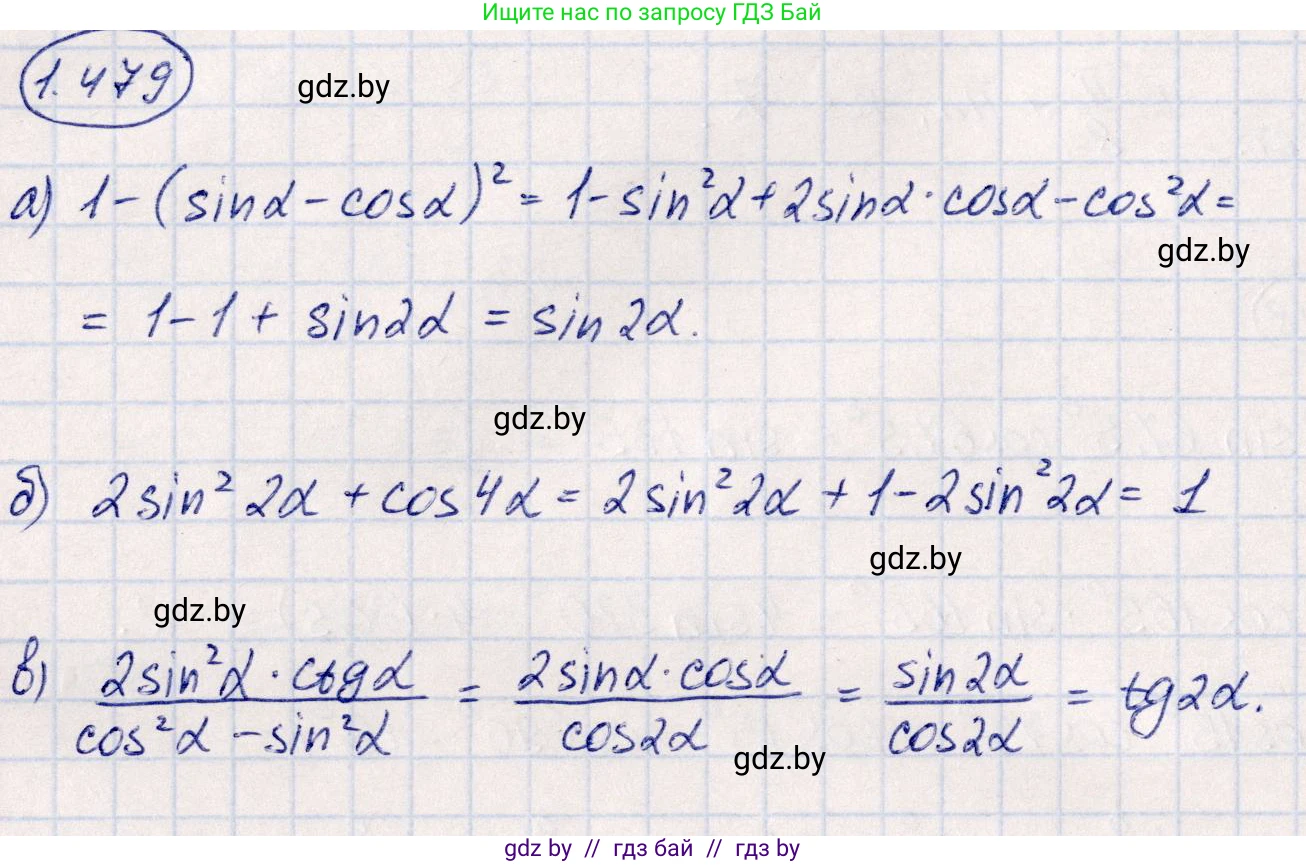 Ищите нас по запросу ГДЗ Бай
1.479
gdz.by
а) 1-(sinα-cosα)² = 1-sin²α+2sinα·cosα-cos²α=
gdz.by
= 1-1+ sin2α = sin2α.
gdz.by
б) 2sin²2α+cos4α = 2sin²2α+1-2sin²2α= 1
gdz.by
gdz.by
в) (2sin²α·ctgα)/(cos²α-sin²α) = (2sinα·cosα)/(cos2α) = (sin2α)/(cos2α) = tg2α.
gdz.by
gdz by // гдз бай // гдз by